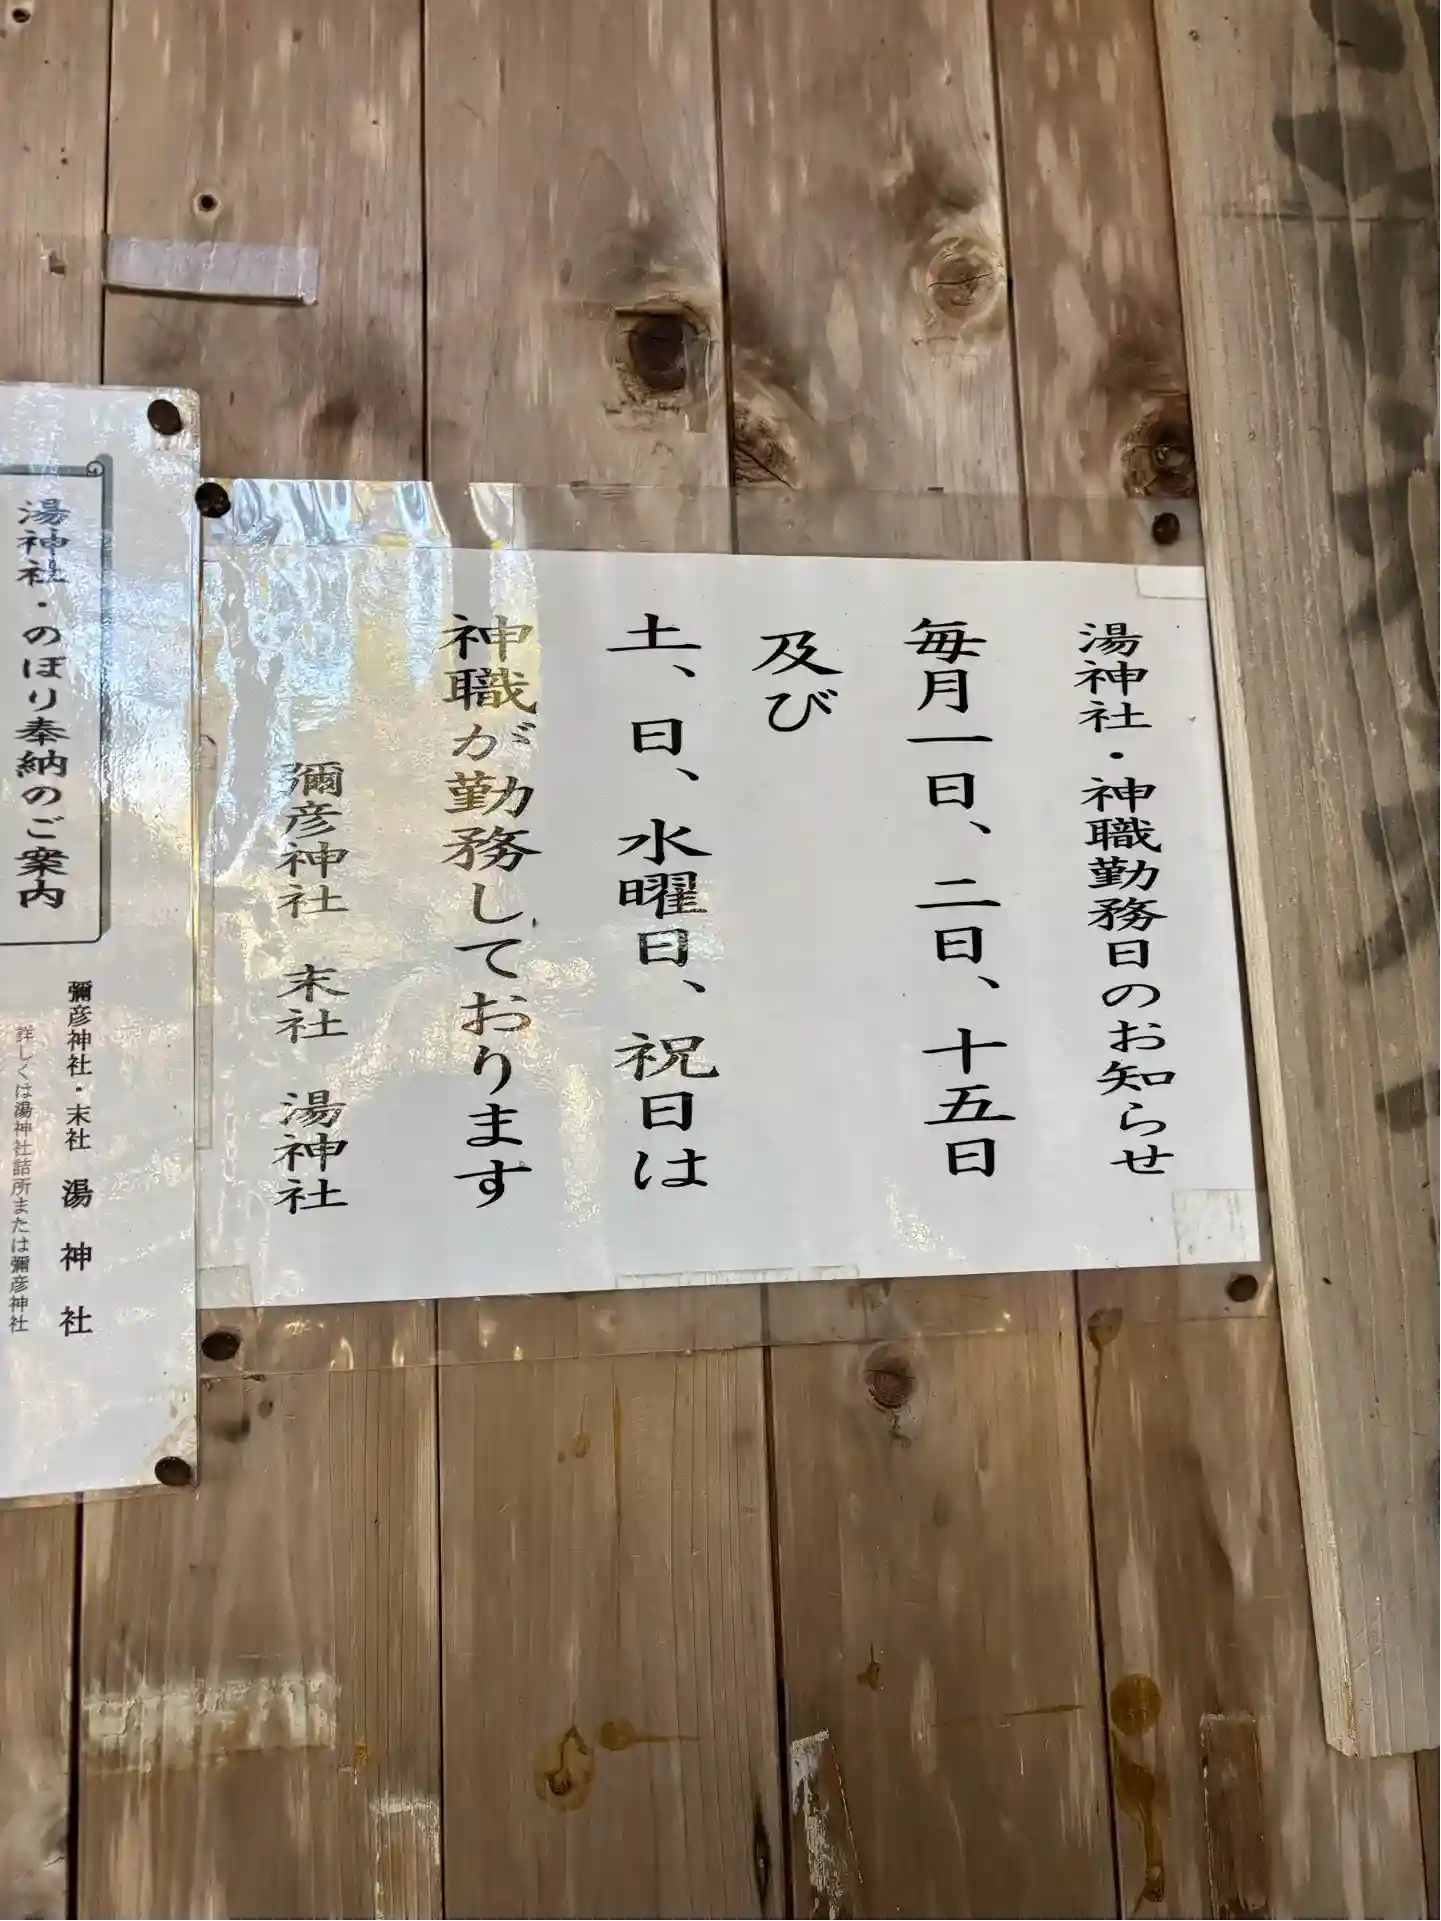 湯神社・神職勤務日のお知らせ
毎月一日、二日、十五日
及び
土、日、水曜日、祝日は
神職が勤務しております
彌彦神社 末社 湯神社
湯神社・のぼり奉納のご案内
彌彦神社・末社 湯神社
詳しくは湯神社詰所または彌彦神社